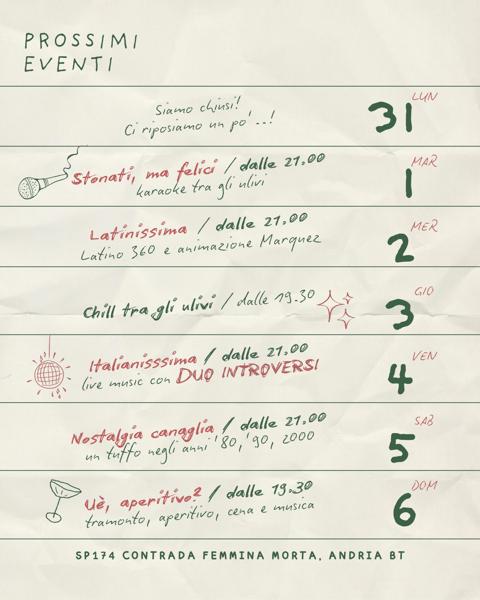 PROSSIMI
EVENTI
LUN
31
Siamo chiusi!
Ci riposiamo un po'..!
MAR
1
Stonati, ma felici / dalle 21.00
karaoke tra gli ulivi
MER
2
Latinissima / dalle 21.00
Latino 360 e animazione Marquez
GIO
3
Chill tra gli ulivi / dalle 19.30
VEN
4
Italianisssima / dalle 21.00
live music con DUO INTROVERSI
SAB
5
Nostalgia canaglia / dalle 21.00
un tuffo negli anni '80, '90, 2000
DOM
6
Uè, aperitivo? / dalle 19.30
tramonto, aperitivo, cena e musica
SP174 CONTRADA FEMMINA MORTA, ANDRIA BT